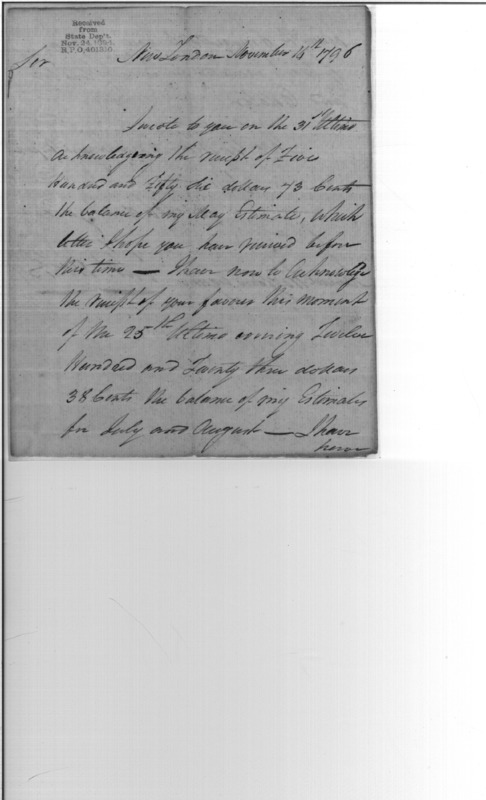 Received
from
State Dep't.
Nov. 24,
R.P.O.
Sir New London November 14th 1796
I wrote to you on the 31st Ultimo
acknowledging the receipt of Five
Hundred and Fifty Six dollars 73 Cents
the balance of my May Estimate, which
letter I hope you have received before
this time — I have now to Acknowledge
the receipt of your favour this moment
of the 25th Ultimo covering Twelve
Hundred and Twenty three dollars
38 Cents the balance of my Estimates
for July and August — I have